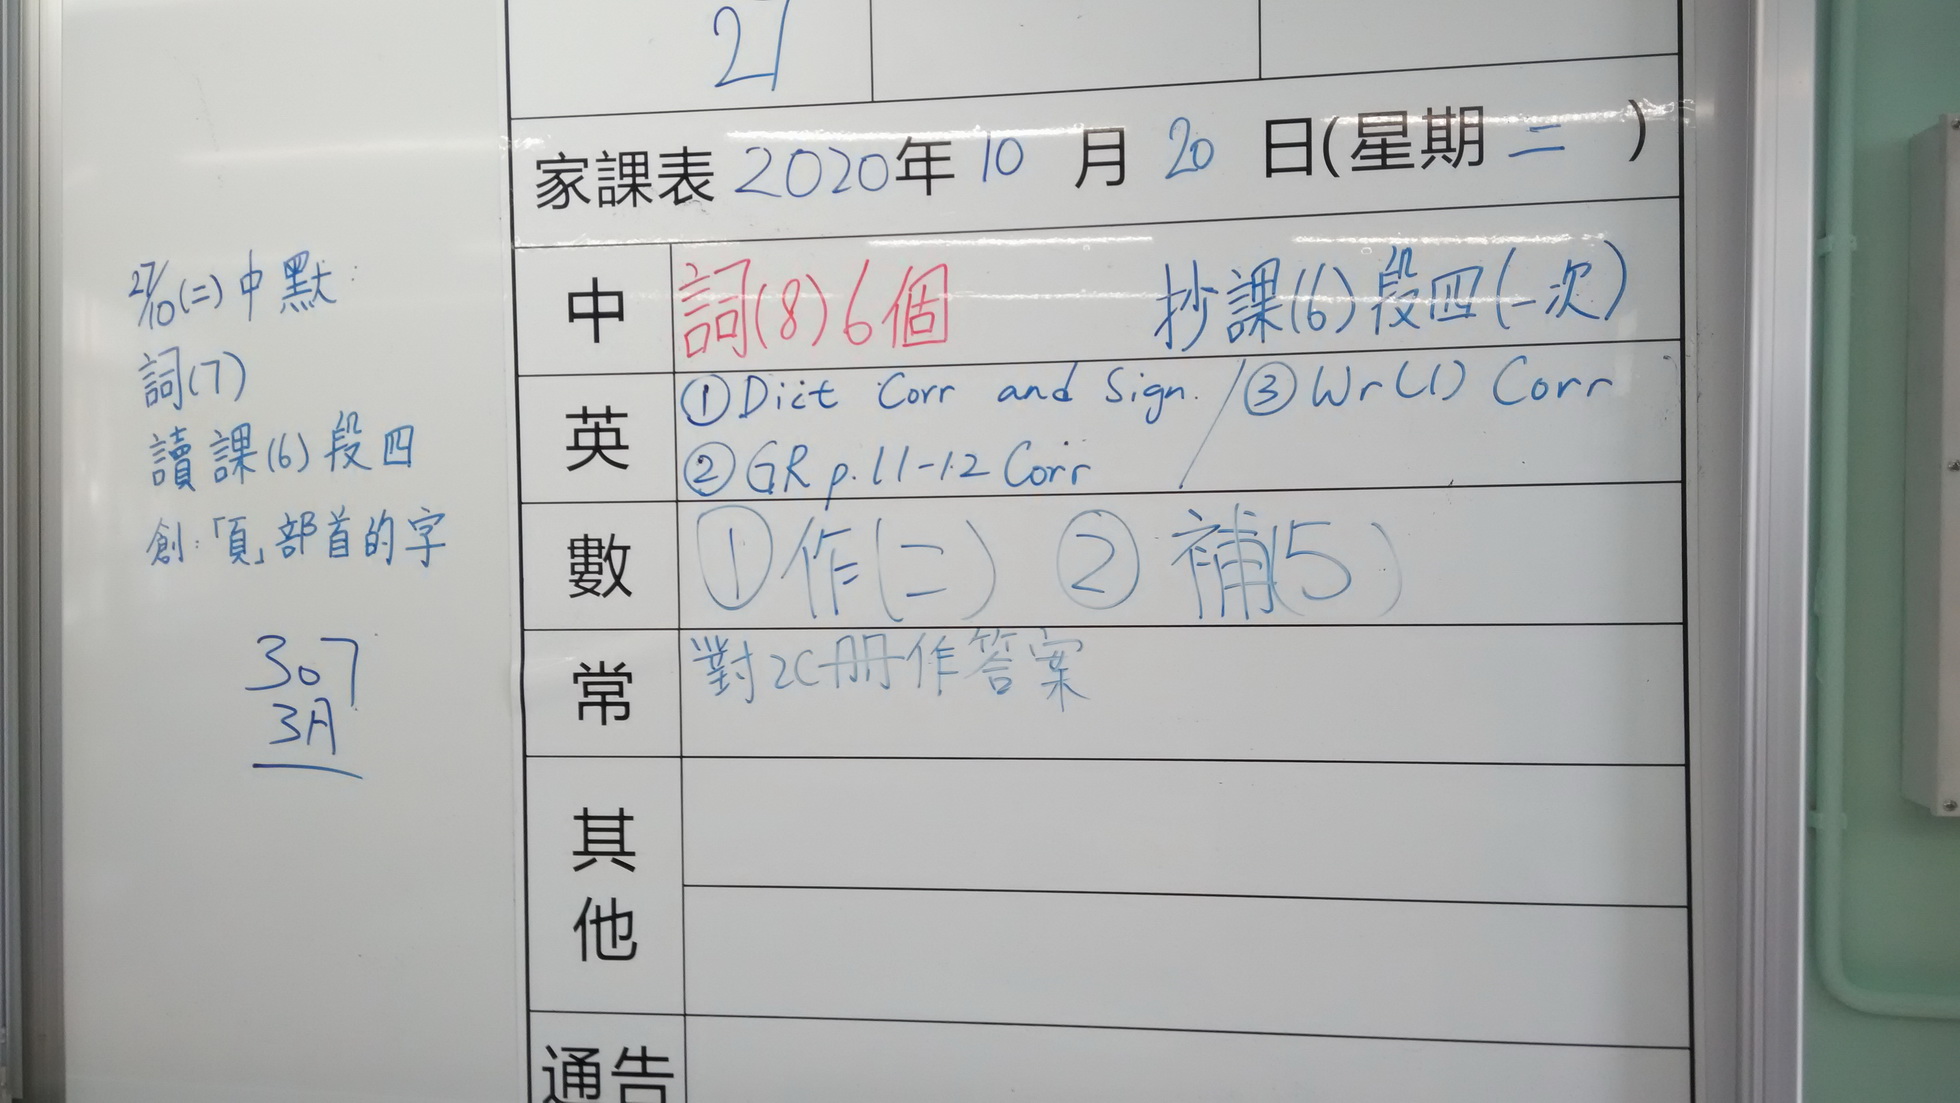 27
家課表 2020年 10 月 20 日(星期 二 )
中 詞(8)6個 抄課(6)段四(一次)
英 ①Dict Corr and Sign. / ③Wr(1) Corr
②GR p.11-12 Corr
數 ①作(二) ②補(5)
常 對2C冊作答案
其他
通告
27/10(二)中默:
詞(7)
讀課(6)段四
創:「頁」部首的字
307
3A